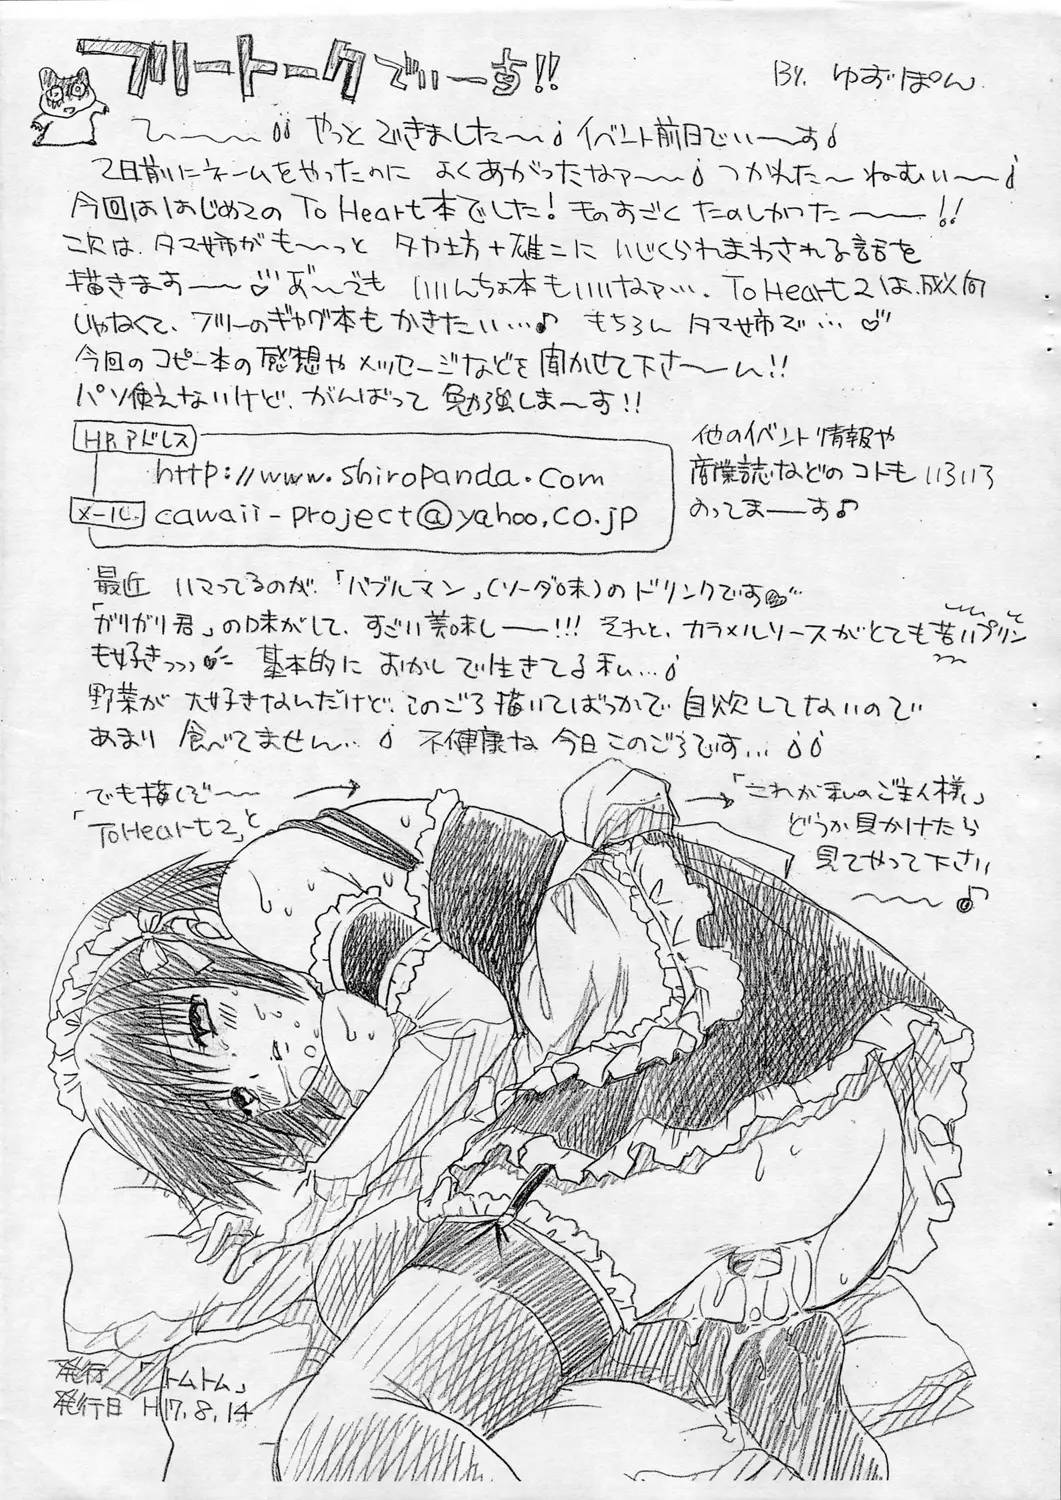 フリートークでぃーす!!
BY. ゆずぽん
ひ〜〜〜 やっとできました〜 イベント前日でぃ〜す
2日前にネームをやったのに よくあがったなァ〜〜 つかれた〜 ねむぃ〜〜
今回ははじめての To Heart本でした! ものすごく たのしかった〜〜!!
次は、タマ姉がも〜〜っと タカ坊+雄二に いじくられまわされる話を
描きます〜〜♡ あ゛〜〜でも いいんちょ本もいいなァ…。To Heart2は、成人向
じゃなくて、フリーのギャグ本も かきたい…♪ もちろん タマ姉で…♡
今回のコピー本の感想や メッセージなどを聞かせて下さ〜〜い!!
パソ使えないけど、がんばって 勉強しま〜す!!
HPアドレス
http://www.shiropanda.com
メール
cawaii-project@yahoo.co.jp
他のイベント情報や
商業誌などのコトも いろいろ
のってま〜〜す♪
最近 ハマってるのが、「バブルマン」(ソーダ味)のドリンクです
「ガリガリ君」の味がして、すごい美味し〜〜!!! それと、カラメルソースがとても苦いプリン
も好きっっっ 基本的に おかしで生きてる私…
野菜が 大好きなんだけど、このごろ描いてばっかで 自炊してないので
あまり 食べてません… 不健康な 今日このごろです…
でも描くぞ〜〜
「ToHeart2」と
「これが私のご主人様」
どうか見かけたら
見てやって下さい
〜〜♪
発行 「トムトム」
発行日 H17.8.14